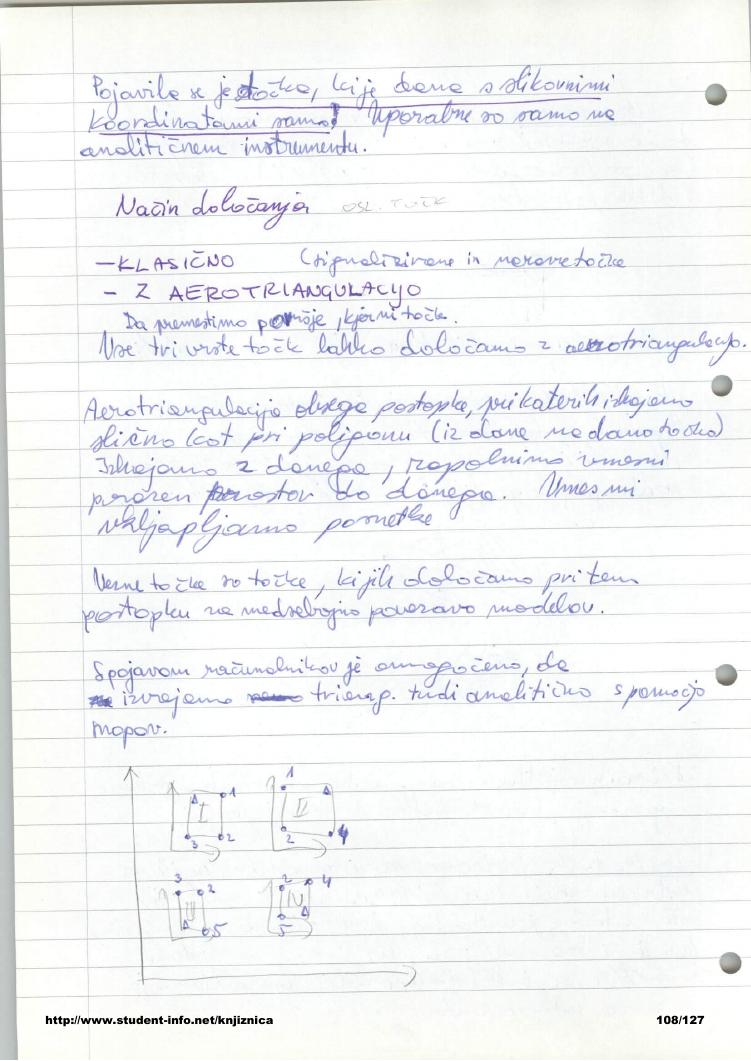 Pojavila se je točka, ki je dana s slikovnimi
koordinatami samo! Uporabne so samo na
analitičnem instrumentu.
Način določanja osl. točk
- KLASIČNO (signalizirane in naravne točke
- Z AEROTRIANGULACIJO
Da premestimo področje, kjer ni točk.
Vse tri vrste točk lahko določamo z aerotriangulacijo.
Aerotriangulacija obsega postopke, pri katerih izhajamo
slično kot pri poligonu (iz dane na dano točko)
Izhajamo z danega, zapolnimo vmesni
prazen prostor do danega. Vmes mi
vkljapljamo posnetke
Vezne točke so točke, ki jih določamo pri tem
postopku za medsebojno povezavo modelov.
S pojavom računalnikov je omogočeno, da
izvajamo triang. tudi analitično s pomočjo
mapov.
1
I 1 II
3 2 2 4
3 2 2 4
III IV
5 5
http://www.student-info.net/knjiznica 108/127